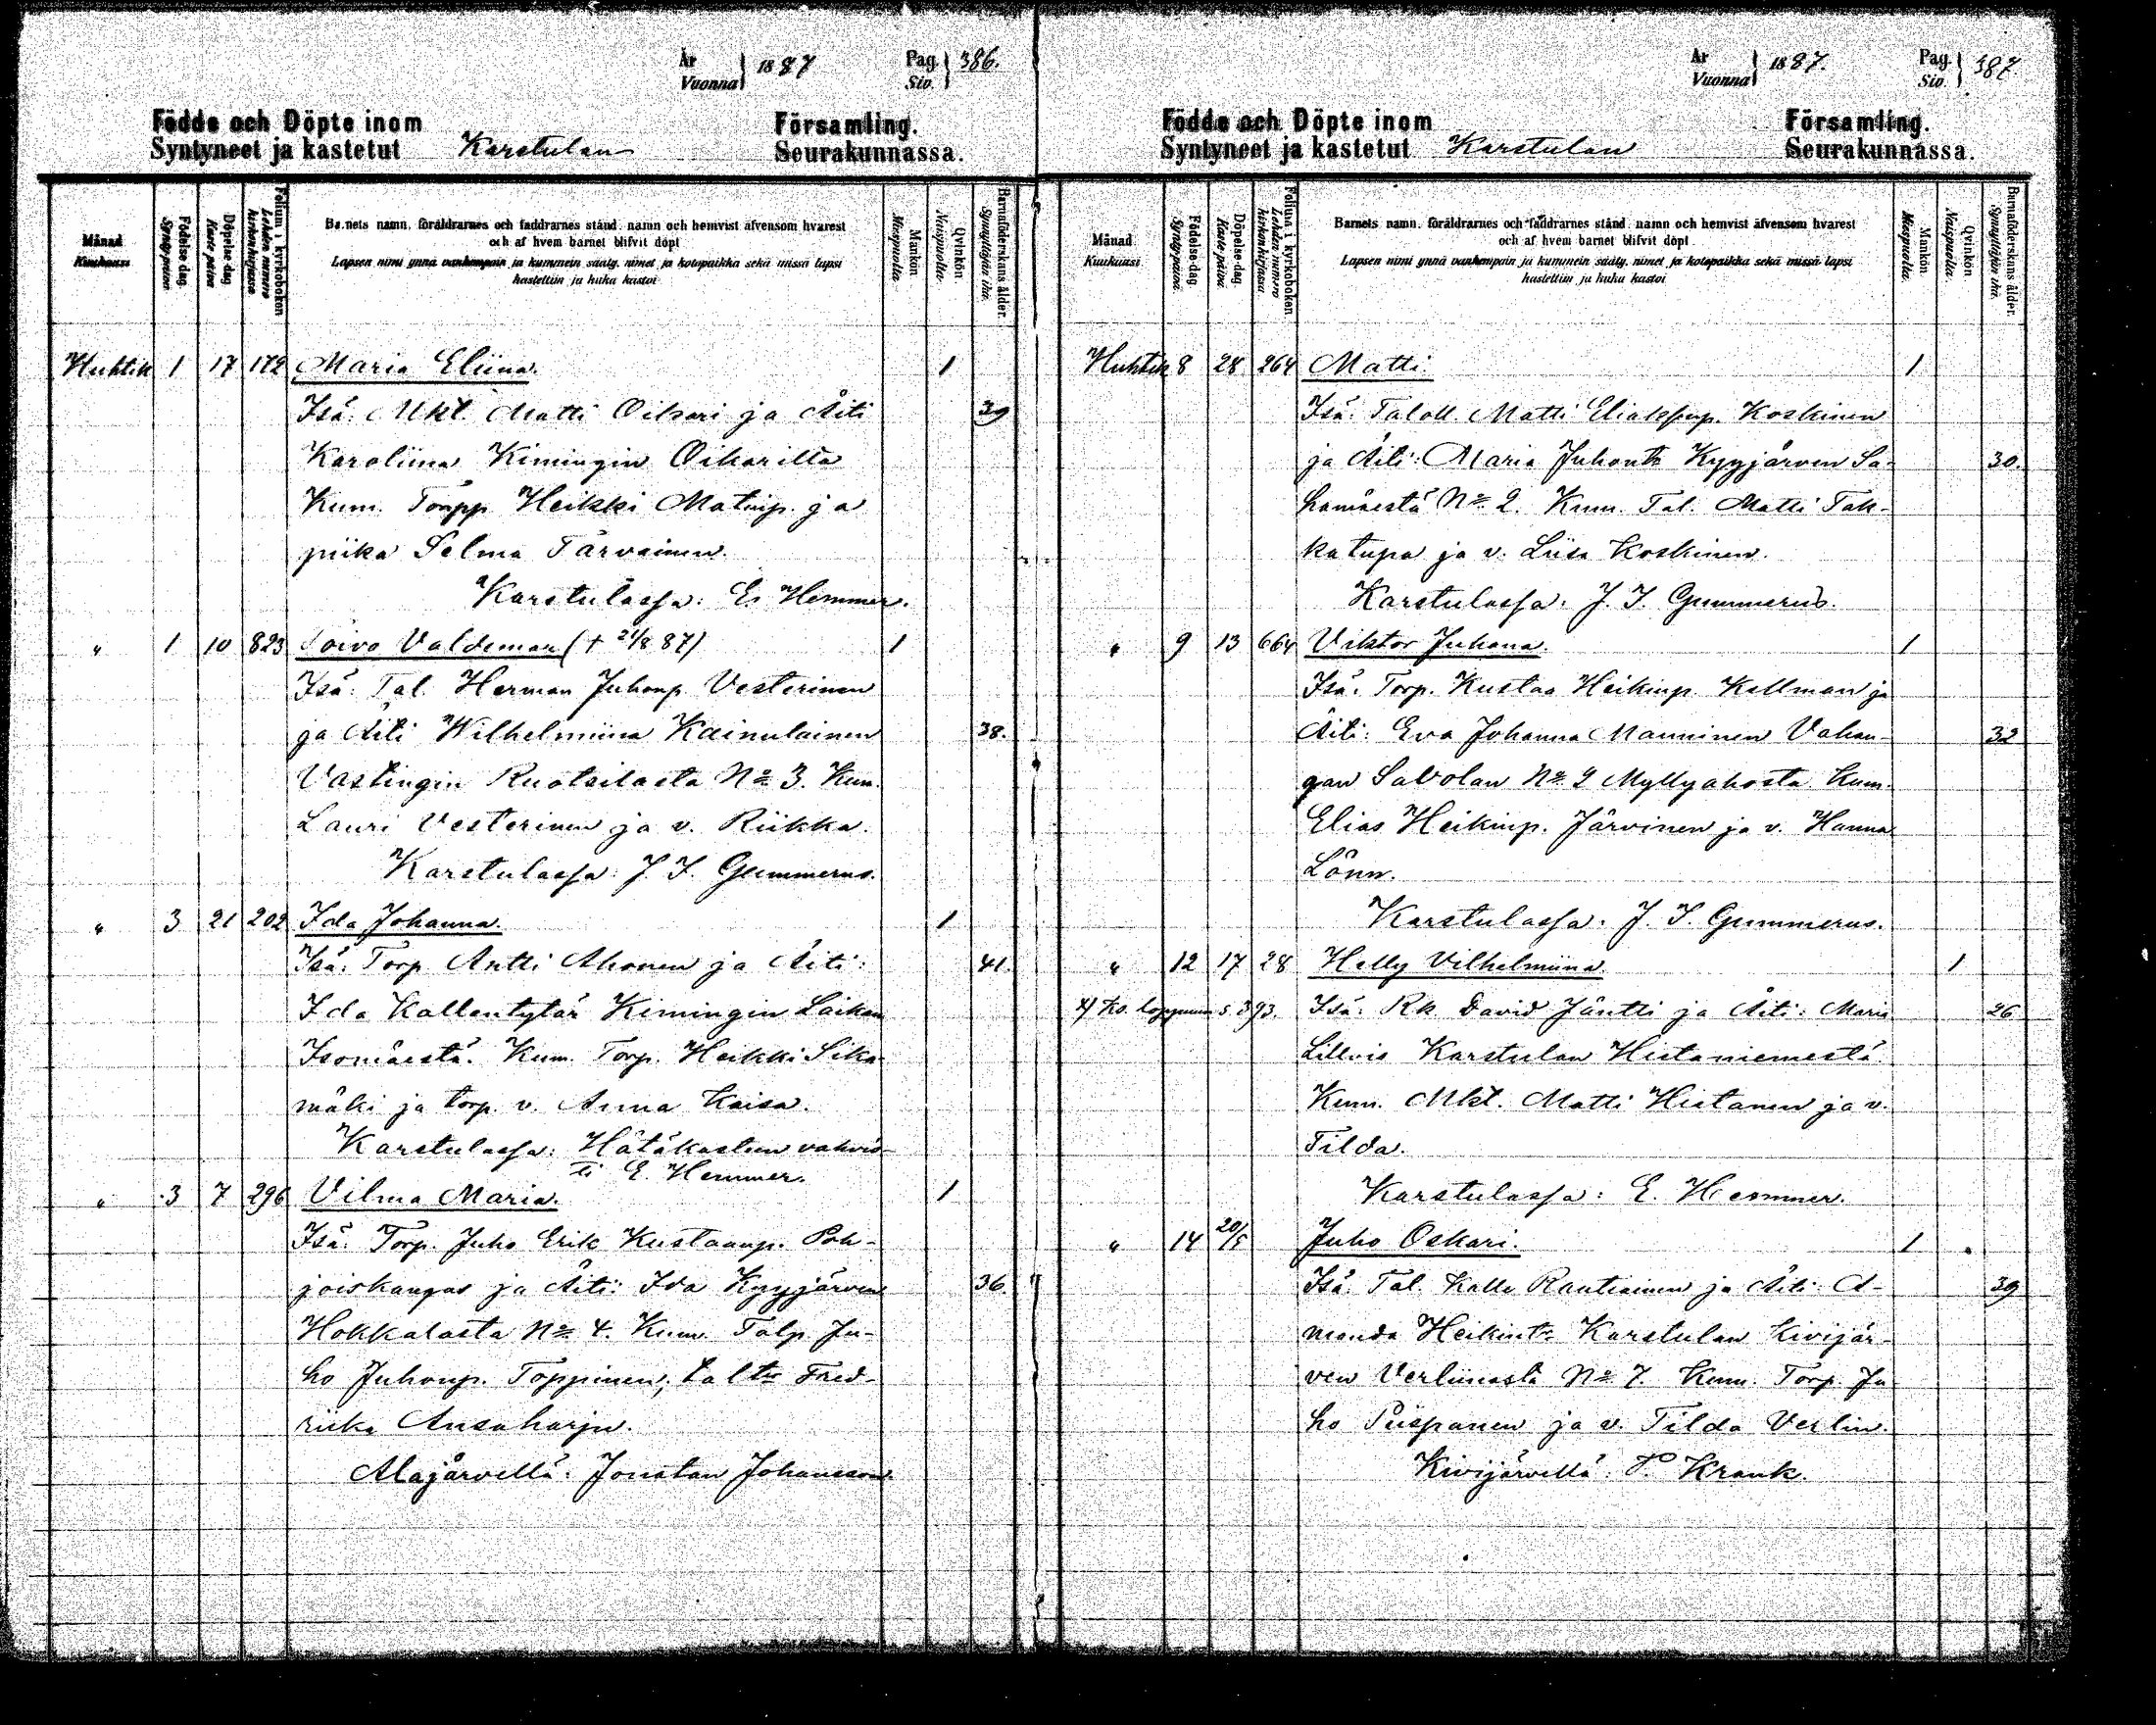 År
Vuonna 1887
Pag.
Siv. 386.
Födde och Döpte inom Församling.
Syntyneet ja kastetut Karstulan Seurakunnassa.
Månad
Kuukausi
Födelse dag
Syntypäivä
Döpelse dag
Kaste päivä
Folium i kyrkoboken
Lehden numero kirkonkirjassa
Barnets namn, föräldrarnes och faddrarnes stånd, namn och hemvist äfvensom hvarest
och af hvem barnet blifvit döpt
Lapsen nimi ynnä vanhempain ja kummein sääty, nimet ja kotopaikka sekä missä lapsi
kastettiin ja kuka kastoi
Mankön
Miespuolta
Qvinkön
Naispuolta
Barnaföderskans ålder.
Synnyttäjän ikä.
Huhtik 1 17 172 Maria Eliina. 1
Isä: Mkt. Matti Oikari ja Äiti 39
Karoliina Kimingin Oikarilta
Kum. Torpp Heikki Matinp. ja
piika Selma Tarvainen.
Karstulassa: E. Hemmer.
" 1 10 823 Toivo Valdemar († 21/8 87) 1
Isä: Tal. Herman Juhonp. Vesterinen
ja Äiti Wilhelmiina Kainulainen 38.
Vastingin Ruotsilasta No 3. Kum.
Lauri Vesterinen ja v. Riikka.
Karstulassa: J. I. Gummerus.
" 3 21 202 Ida Johanna. 1
Isä: Torp Antti Ahonen ja Äiti: 41.
Ida Kallentytär Kimingin Laikan
Isomäestä. Kum. Torp. Heikki Sika-
mäki ja torp. v. Anna Kaisa.
Karstulassa: Hätäkasteen vahvis-
ti E. Hemmer.
" 3 7 296 Vilma Maria. 1
Isä: Torp. Juho Erik Kustaanp. Poh-
joiskangas ja Äiti: Ida Kyyjärven 36.
Hokkalasta No 4. Kum. Talp. Ju-
ho Juhonp. Toppinen, tal tr Fred-
riika Ansaharju.
Alajärvellä: Jonatan Johansson.
År
Vuonna 1887.
Pag.
Siv. 387.
Födde och Döpte inom Församling.
Syntyneet ja kastetut Karstulan Seurakunnassa.
Månad
Kuukausi
Födelse-dag
Syntypäivä.
Döpelse-dag
Kaste päivä
Folium i kyrkoboken
Lehden numero kirkonkirjassa
Barnets namn, föräldrarnes och faddrarnes stånd, namn och hemvist äfvensom hvarest
och af hvem barnet blifvit döpt.
Lapsen nimi ynnä vanhempain ja kummein sääty, nimet ja kotopaikka sekä missä lapsi
kastettiin ja kuka kastoi
Mankön
Miespuolta.
Qvinkön
Naispuolta.
Barnaföderskans ålder.
Synnyttäjän ikä.
Huhtik 8 28 264 Matti. 1
Isä: Taloll. Matti Eliakssp. Koskinen
ja Äiti: Maria Juhontr Kyyjärven Sa- 30.
hamäestä No 2. Kum. Tal. Matti Tak-
katupa ja v. Liisa Koskinen.
Karstulassa: J. I. Gummerus.
" 9 13 664 Viktor Juhana. 1
Isä: Torp. Kustaa Heikinp. Kellman ja
Äiti: Eva Johanna Manninen Vahan- 32
gan Savolan No 2 Myllyahosta. Kum.
Elias Heikinp. Järvinen ja v. Hanna
Lönn.
Karstulassa: J. I. Gummerus.
" 12 17 28 Helly Vilhelmiina. 1
x) Ks. loppuun s. 393. Isä: Rk David Jäntti ja Äiti: Maria 26
Karstulan Hietaniemestä.
Kum. Mkt. Matti Hietanen ja v.
Tilda.
Karstulassa: E. Hemmer.
" 14 20/5 Juho Oskari. 1
Isä: Tal. Kalle Rautiainen ja Äiti: A- 39
manda Heikintr Karstulan Kivijär-
ven Verliinistä No 7. Kum. Torp. Ju-
ho Piispanen ja v. Tilda Verlin.
Kivijärvellä: Krank.